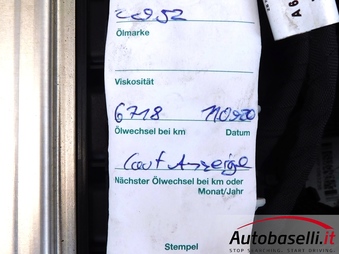 229.52
Ölmarke
Viskosität
6718
Ölwechsel bei km Datum
laut Anzeige
Nächster Ölwechsel bei km oder
Monat/Jahr
Stempel
Autobaselli.it
STOP SEARCHING. START DRIVING.